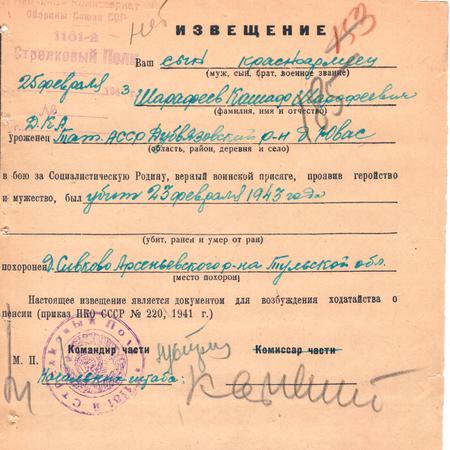 Народный Комиссариат
Обороны Союза ССР
1181-й
Стрелковый Полк
нет
153
ИЗВЕЩЕНИЕ
Ваш сын красноармеец
(муж, сын, брат, военное звание)
25 февраля 3
Шарафеев Кашаф Шарафеевич
(фамилия, имя и отчество)
185
Д.КА
уроженец Тат. АССР Дубъязовский р-н д. Ювас
(область, район, деревня и село)
в бою за Социалистическую Родину, верный воинской присяге, проявив геройство
и мужество, был убит 23 февраля 1943 года
(убит, ранен и умер от ран)
похоронен д. Сивково Арсеньевского р-на Тульской обл.
(место похорон)
Настоящее извещение является документом для возбуждения ходатайства о
пенсии (приказ НКО СССР № 220, 1941 г.)
М. П. Командир части Комиссар части
Начальник штаба: